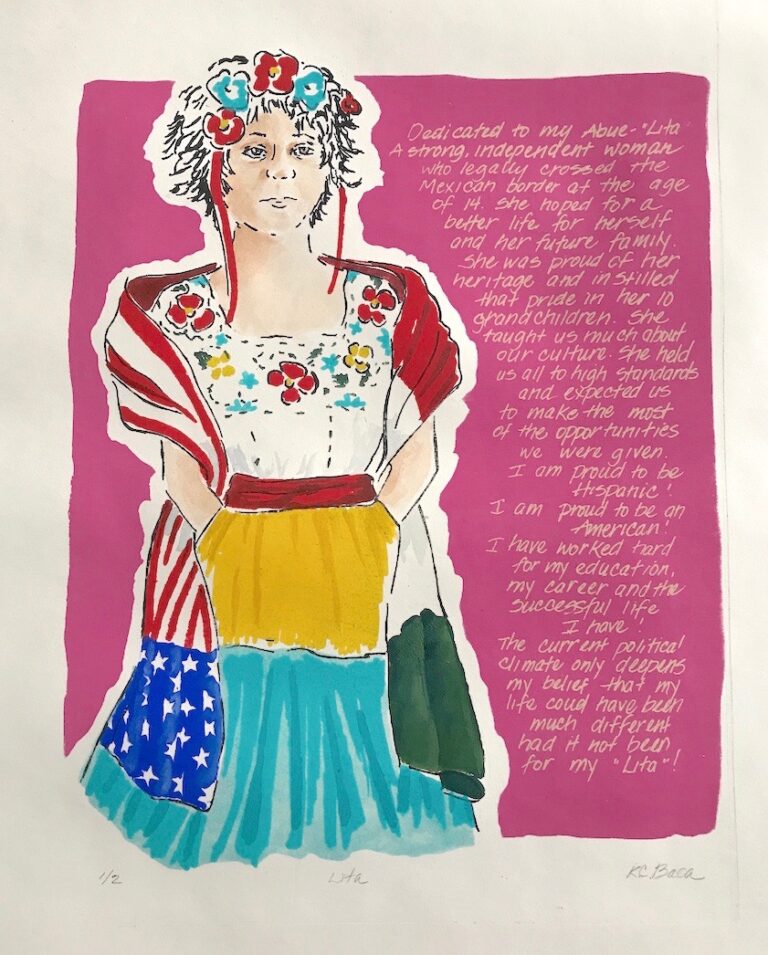 Dedicated to my Abue-"Lita"
A strong, independent woman
who legally crossed the
Mexican border at the age
of 14. She hoped for a
better life for herself
and her future family.
She was proud of her
heritage and instilled
that pride in her 10
grandchildren. She
taught us much about
our culture. She held
us all to high standards
and expected us
to make the most
of the opportunities
we were given.
I am proud to be
Hispanic!
I am proud to be an
American!
I have worked hard
for my education,
my career and the
successful life
I have!
The current political
climate only deepens
my belief that my
life coud have been
much different
had it not been
for my "Lita"!
1/2 Lita KC.Baca